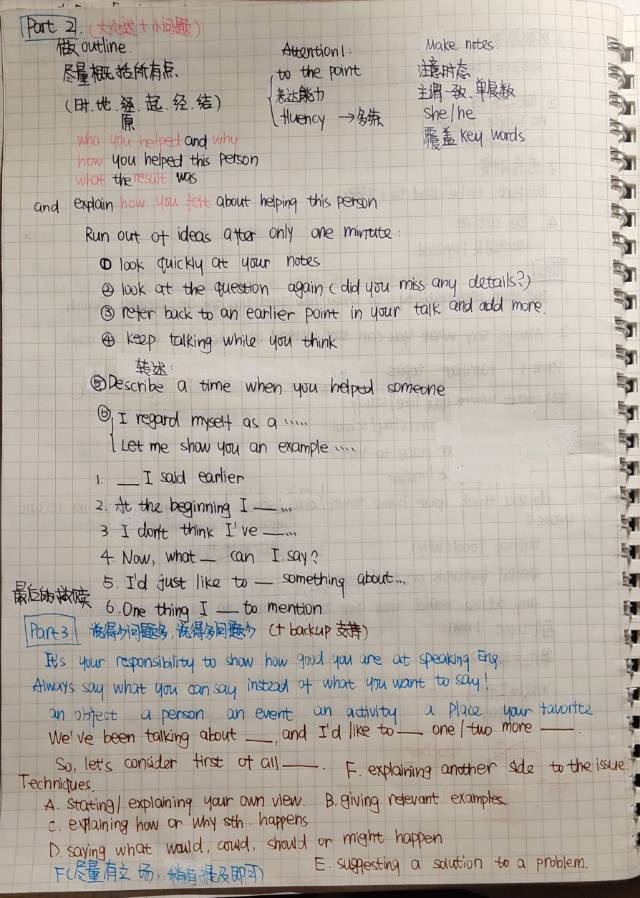 Part 2. (大论述+小问题)
做 outline.
尽量概括所有点.
(时.地.经.起.经.结)
原
Attention!:
to the point
表达能力
fluency → 多练
Make notes.
注意时态
主谓一致. 单复数
she/he
覆盖 key words
who you helped and why
how you helped this person
what the result was
and explain how you felt about helping this person
Run out of ideas after only one mintute:
① look quickly at your notes
② look at the question again (did you miss any details?)
③ refer back to an earlier point in your talk and add more.
④ keep talking while you think
转述:
⑤ Describe a time when you helped someone
⑥ I regard myself as a .....
Let me show you an example ....
1. __ I said earlier
2. At the beginning I __...
3. I don't think I've __...
4. Now, what __ can I say?
5. I'd just like to __ something about...
最后的时候 6. One thing I __ to mention
Part 3. 说得少问题多, 说得多问题少 (+ backup 支持)
It's your responsibility to show how good you are at speaking Eng.
Always say what you can say instead of what you want to say!
an object a person an event an activity a place your favorite
We've been talking about __, and I'd like to __ one/two more __.
So, let's consider first of all __. F. explaining another side to the issue.
Techniques.
A. stating/explaining your own view. B. giving relevant examples.
C. explaining how or why sth. happens
D. saying what would, could, should or might happen
F (尽量有立场, 稍有提及即可) E. suggesting a solution to a problem.